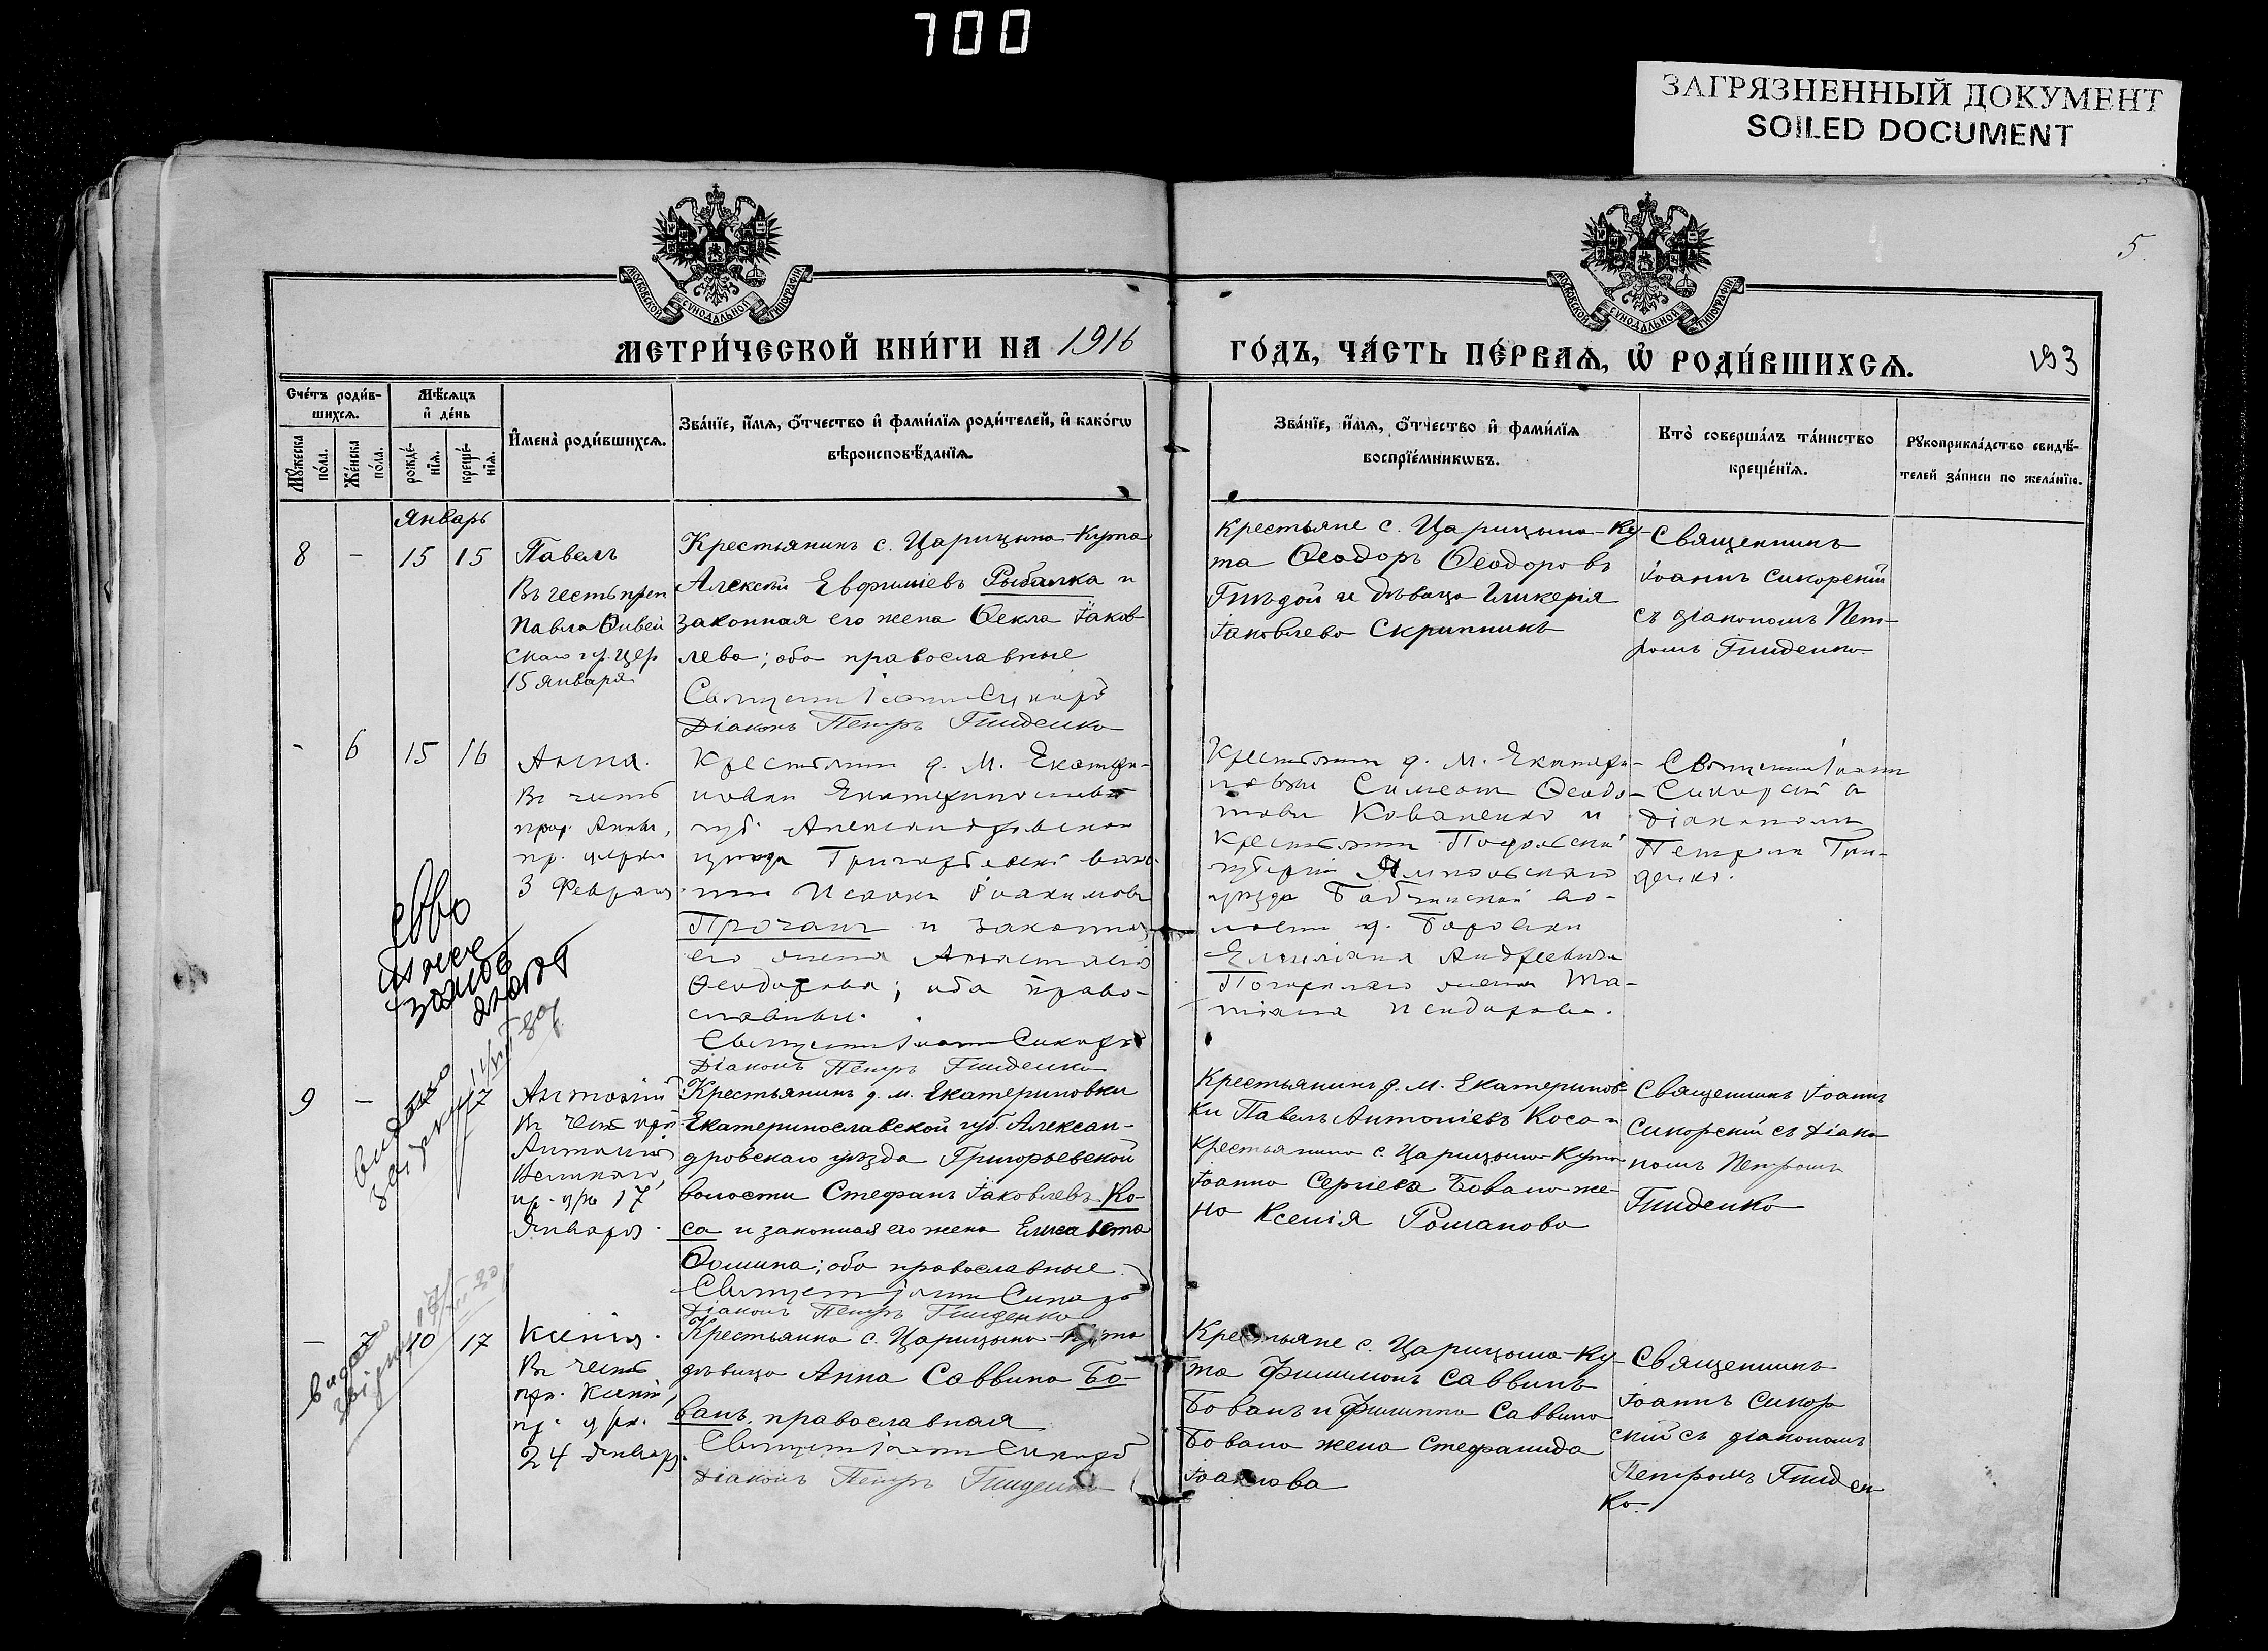 700
ЗАГРЯЗНЕННЫЙ ДОКУМЕНТ
SOILED DOCUMENT
5.
МОСКОВСКОЙ СУНОДАЛЬНОЙ ТИПОГРАФІИ
МОСКОВСКОЙ СУНОДАЛЬНОЙ ТИПОГРАФІИ
МЕТРИ́ЧЕСКОЙ КНИ́ГИ НА 1916
ГО́ДЪ, ЧА́СТЬ ПЕ́РВАѦ, Ѡ҆ РОДИ́ВШИХСѦ.
193
Сче́тъ роди́в-
шихсѧ.
Мꙋ́жеска по́ла.
Же́нска по́ла.
Мѣ́сѧцъ
и҆ де́нь
рожде́-
нїѧ.
креще́-
нїѧ.
И҆мена̀ роди́вшихсѧ.
Зва́нїе, и҆́мѧ, ѻ҆́тчество и҆ фами́лїѧ роди́телей, и҆ како́гѡ
вѣроисповѣ́данїѧ.
Зва́нїе, и҆́мѧ, ѻ҆́тчество и҆ фами́лїѧ
воспрїе́мникѡвъ.
Кто̀ соверша́лъ та́инство
креще́нїѧ.
Рꙋкоприкла́дство свидѣ́-
телей за́писи по жела́нїю.
Январь
8
-
15
15
Павелъ
Въ честь преп
Павла Ѳивей
скаго пр. цер
15 января
Крестьянинъ с. Царицына-Кута
Алексѣй Евфиміевъ Рыбалка и
законная его жена Ѳекла Іаков-
лева; оба православные
Діаконъ Петръ Гниденко
Крестьяне с. Царицына-Ку-
та Ѳеодоръ Ѳеодоровъ
Гнѣдой и дѣвица Гликерія
Іаковлева Скрипникъ
Священникъ
Іоаннъ Сикорскій
съ діакономъ Пет-
ромъ Гниденко.
-
6
15
16
Анна.
Въ честь
прор. Анны,
пр. церкви
3 Февраля
Крестьянин д. М. Екатери-
новки Екатеринославской
губ. Александровскаго
уѣзда Григорьевской волос-
ти Исаакъ Іоакимовъ
Прочанъ и законная
его жена Анастасія
Ѳеодорова; оба право-
славные.
Діаконъ Петръ Гниденко
Крестьянин д. М. Екатери-
новки Симеонъ Ѳеодо-
товъ Коваленко и
губерніи
уѣзда во-
лости д.
Андреевича
жена Та-
тіана Исидорова.
Священникъ Іоаннъ
Сикорскій съ
діакономъ
Петромъ Гни-
денко.
9
-
17
Антоній
Въ честь преп
Антонія
Великаго,
пр. цер 17
Января.
Крестьянинъ д. М. Екатериновки
Екатеринославской губ. Алексан-
дровскаго уѣзда Григорьевской
волости Стефанъ Іаковлевъ Ко-
са и законная его жена Елисавета
Ѳомина; оба православные.
Діаконъ Петръ Гниденко
Крестьянинъ д. М. Екатеринов-
ки Павелъ Антоніевъ Коса и
крестьянина с. Царицына-Кута
Іоанна Сергіева Бована же-
на Ксенія Романова
Священникъ Іоаннъ
Сикорскій съ діако
номъ Петромъ
Гниденко
-
7
10
17
Ксенія.
Въ честь
пр. Ксеніи,
пр. церк.
24 Января.
Крестьянка с. Царицына-Кута
дѣвица Анна Саввина Бо-
ванъ, православная
Діаконъ Петръ Гниденко
Крестьяне с. Царицына-Ку-
та Филимонъ Саввинъ
Бованъ и Филиппа Саввина
Бована жена Стефанида
Священникъ
Іоаннъ Сикор
скій съ діакономъ
Петромъ Гниден
ко.